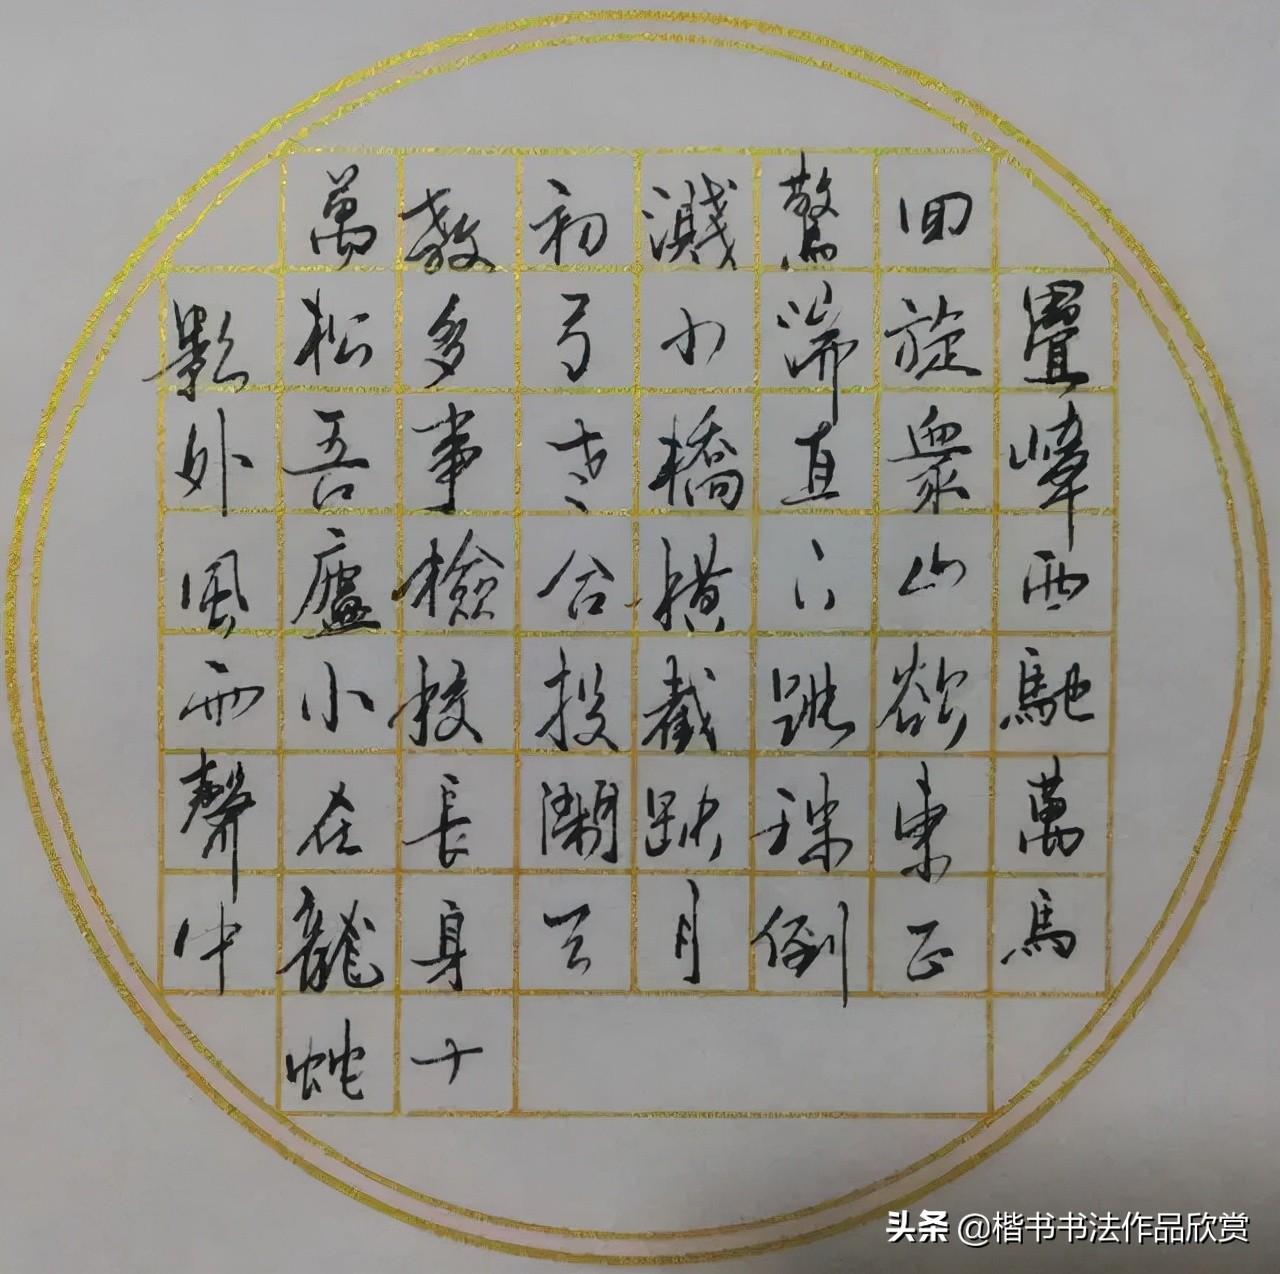 疊嶂西馳萬馬
回旋衆山欲東正
驚湍直下跳珠倒
濺小橋橫截缺月
初弓老合投閒天
教多事檢校長身十
萬松吾廬小在龍蛇
影外風雨聲中
头条 @楷书书法作品欣赏